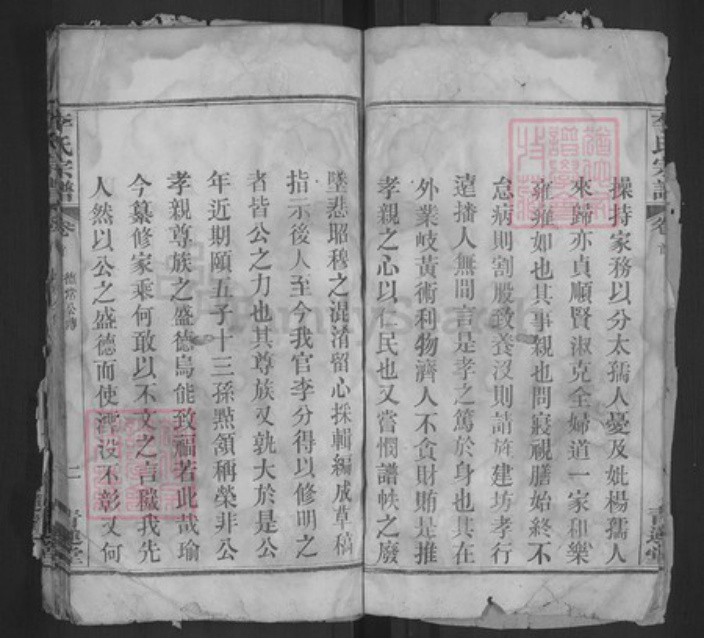 操持家務以分太孺人憂及妣楊孺人
來歸亦貞順賢淑克全婦道一家和樂
雍雍如也其事親也問寢視膳始終不
怠病則割股致養沒則請旌建坊孝行
遠播人無間言是孝之篤於身也其在
外業岐黃術利物濟人不貪財賄是推
孝親之心以仁民也又嘗憫譜帙之廢
墜悲昭穆之混淆留心採輯編成草稿
指示後人至今我官李分得以修明之
者皆公之力也其尊族又孰大於是公
年近期頤五子十三孫點頷稱榮非公
孝親尊族之盛德烏能致福若此哉瑜
今纂修家乘何敢以不文之言穢我先
人然以公之盛德而使湮沒不彰又何
李氏宗譜
卷
首
二
青蓮堂